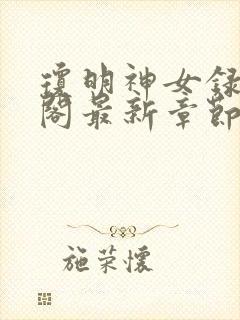 瓊明神女録
閣最新章節
施荣懷